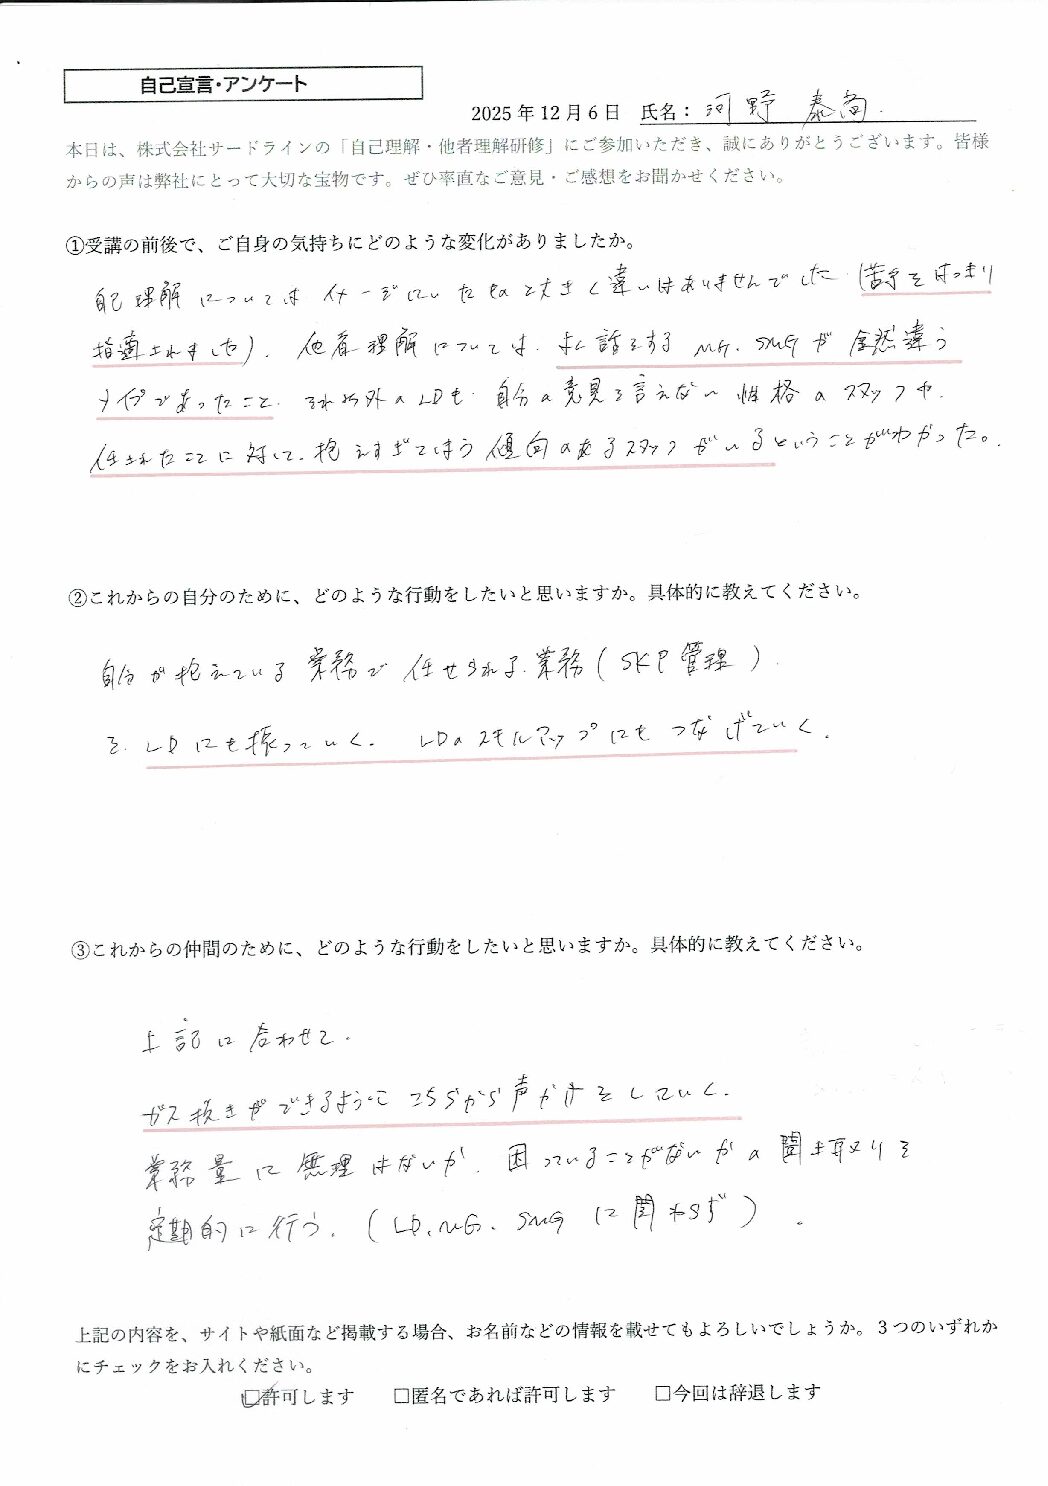 自己宣言・アンケート
2025年12月6日 氏名：河野 泰尚
本日は、株式会社サードラインの「自己理解・他者理解研修」にご参加いただき、誠にありがとうございます。皆様
からの声は弊社にとって大切な宝物です。ぜひ率直なご意見・ご感想をお聞かせください。
①受講の前後で、ご自身の気持ちにどのような変化がありましたか。
自己理解についてはイメージしていたものと大きく違いはありませんでした（苦手をはっきり
指摘されました）。他者理解については、よく話をするMG、SMGが全然違う
タイプであったこと、それ以外のLDも自分の意見を言えない性格のスタッフや、
任されたことに対して、抱えすぎてしまう傾向のあるスタッフがいるということがわかった。
②これからの自分のために、どのような行動をしたいと思いますか。具体的に教えてください。
自分が抱えている業務で任せられる業務（SKP管理）
を LDにも振っていく。LDのスキルアップにもつなげていく。
③これからの仲間のために、どのような行動をしたいと思いますか。具体的に教えてください。
上記に合わせて、
ガス抜きができるようにこちらから声かけをしていく。
業務量に無理はないか、困っていることがないかの聞き取りを
定期的に行う。（LD、MG、SMGに関わらず）。
上記の内容を、サイトや紙面など掲載する場合、お名前などの情報を載せてもよろしいでしょうか。３つのいずれか
にチェックをお入れください。
☑許可します □匿名であれば許可します □今回は辞退します